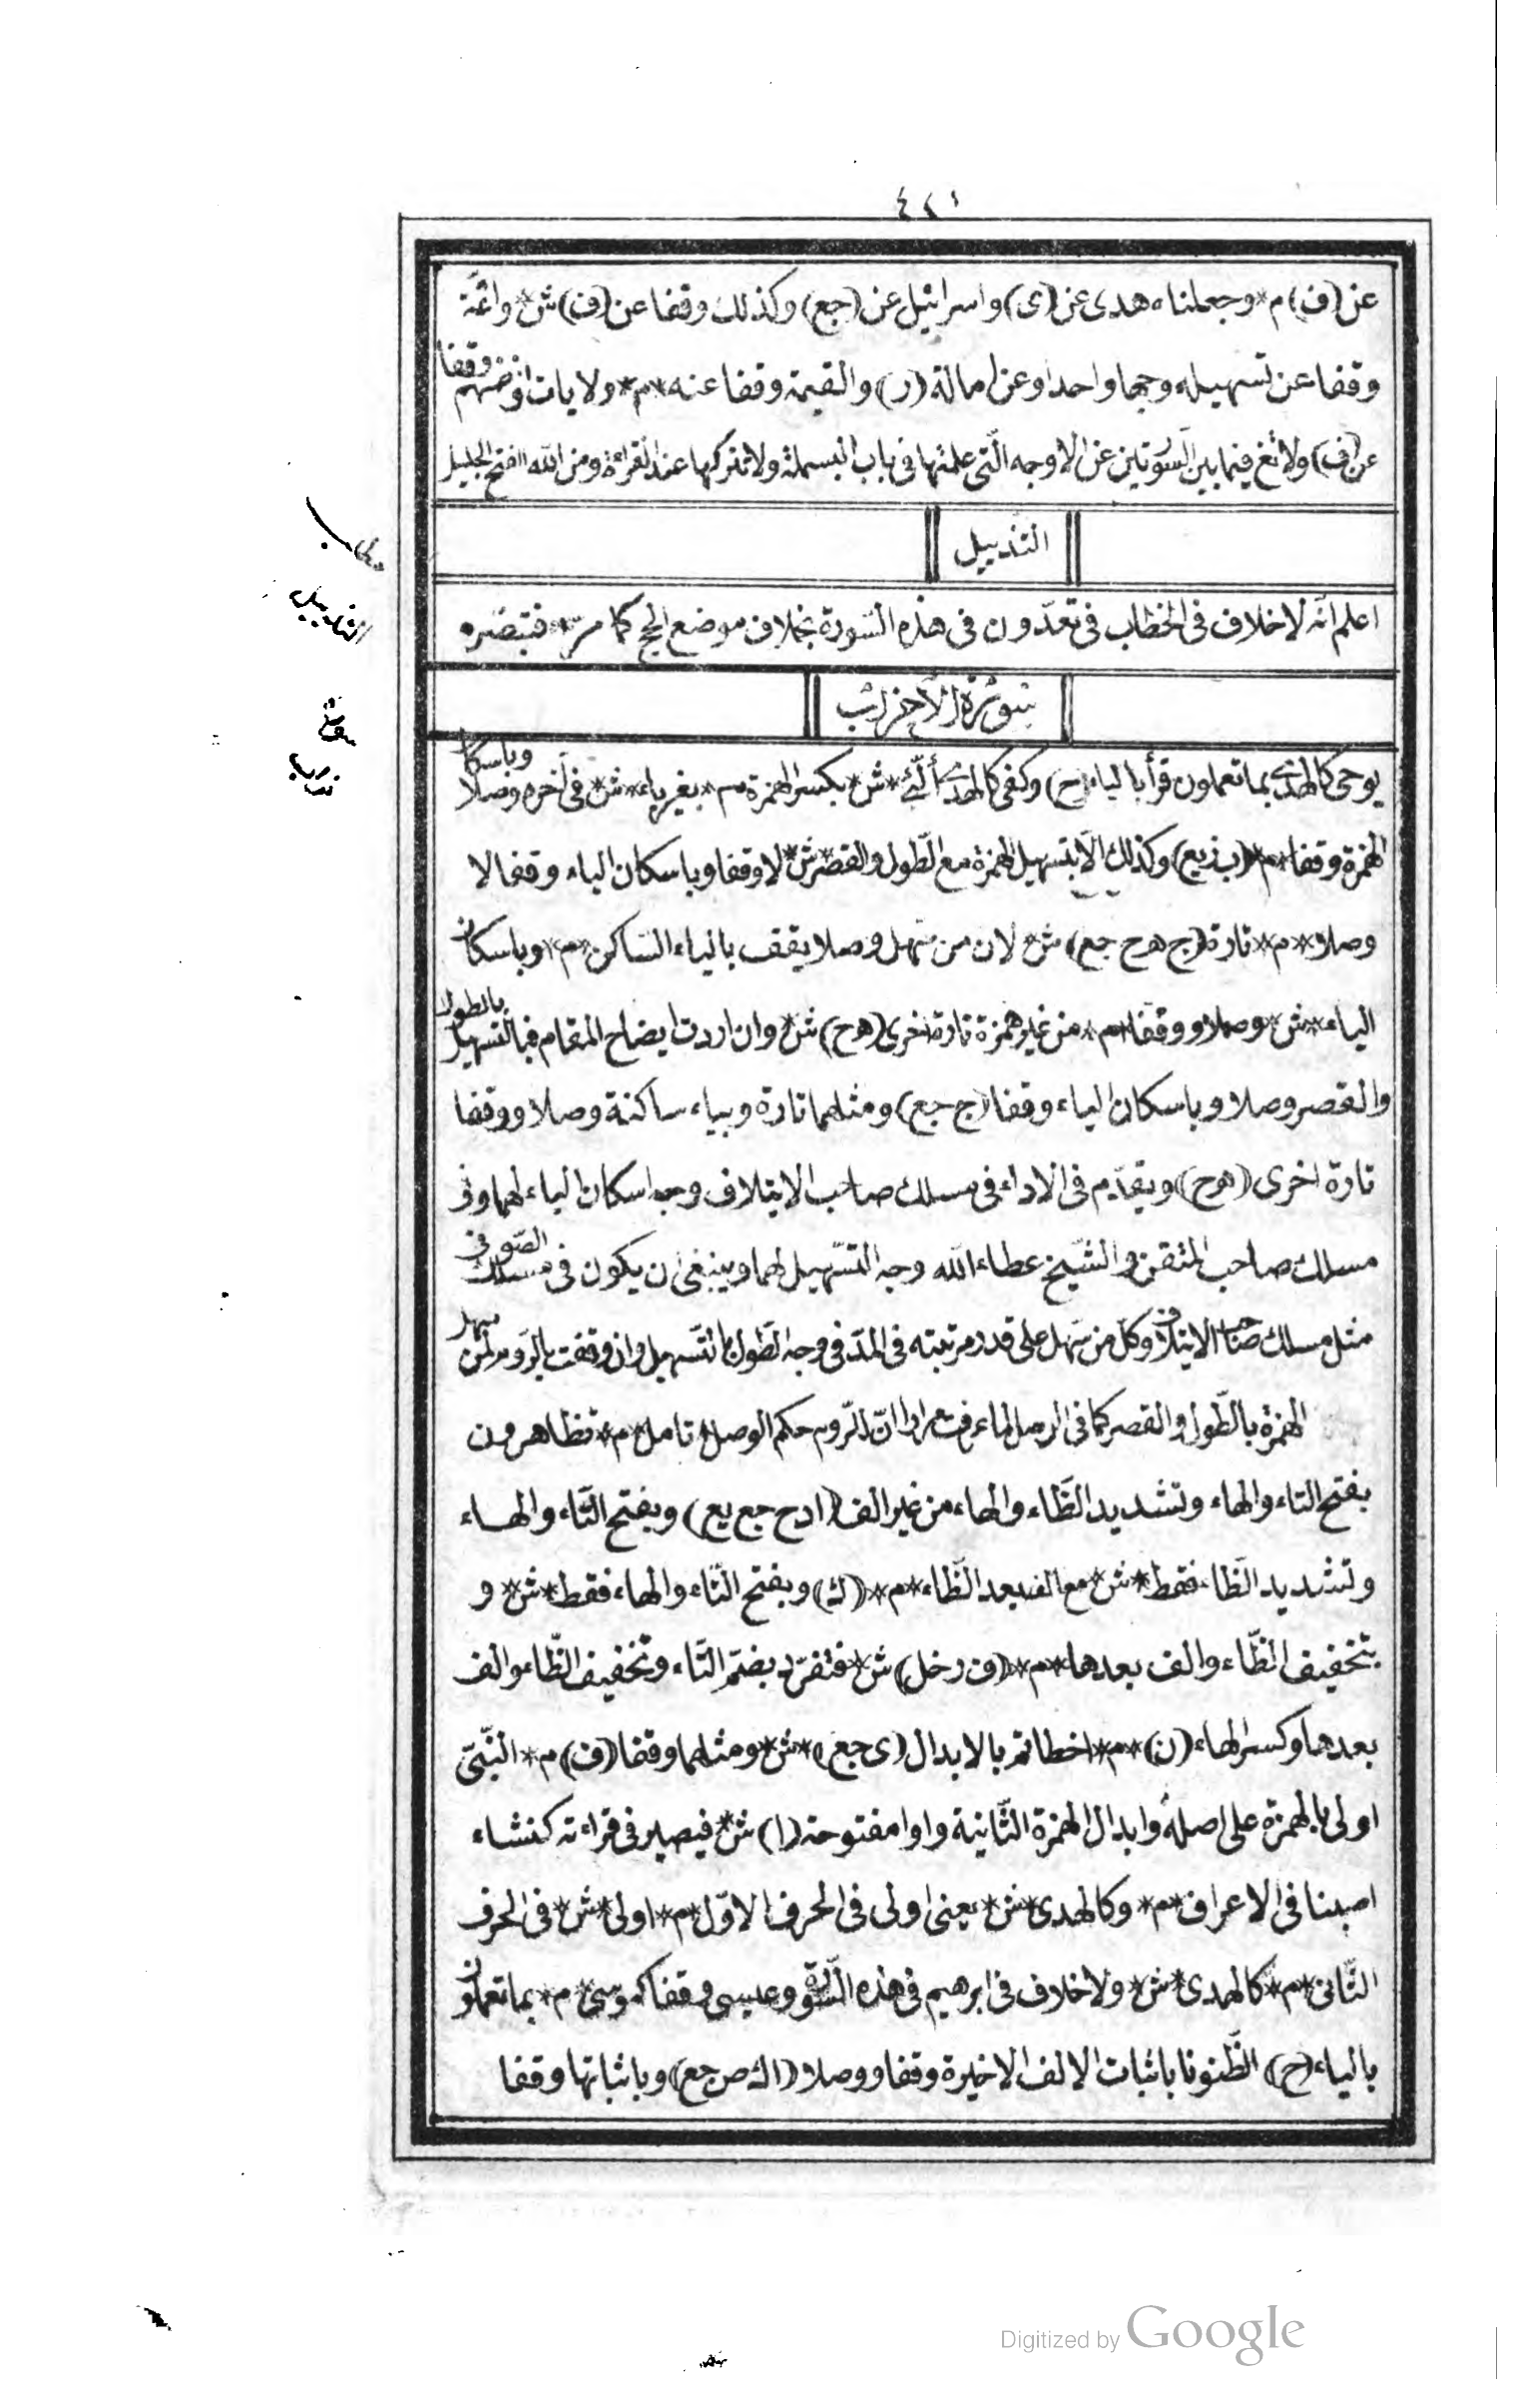 ٤٢١
عن (ف) م* وجعلناه هدى عن (ى) واسرائيل عن (جع) وكذلك وقفا عن (ف) ش* وائمّة
وقفا عن تسهيله وجها واحدا وعن امالة (ر) والقيمة وقفا عنه *م* ولايات وقفا
عن (ف) ولا تغ فيما بين السّورتين عن الاوجه الّتى علمتها فى باب البسملة ولا تتركها عند القراءة ومن الله الفتح الجليل
التذييل
اعلم انّه لا خلاف فى الخطاب فى تعدّون فى هذه السّورة بخلاف موضع الحج كما مرّ فتبصّره
سورة الاحزاب
يوحى كالهدى بما تعملون قرأ بالياء (ح) وكفى كالهدى ألّئ *ش* بكسر الهمزة *م* بغير ياء *ش* فى آخره وصلا وباسكان
الهمزة وقفا *م* (ب ز يع) وكذلك الّا بتسهيل الهمزة مع الطّول والقصر *ش* لا وقفا وباسكان الياء وقفا لا
وصلا *م* تارة (ج ه ح جع) ش* لان من سهل وصلا يقف بالياء السّاكن *م* وباسكان
الياء *ش* وصلا ووقفا *م* من غير همزة تارة اخرى (ه ح) ش* وان اردت ايضاح المقام فبالتّسهيل بالطول
والقصر وصلا وباسكان الياء وقفا (ج جع) ومثلهما تارة وبياء ساكنة وصلا ووقفا
تارة اخرى (ه ح) ويقدّم فى الاداء فى مسلك صاحب الايتلاف وجه اسكان الياء لهما وفى
مسلك صاحب المتقن والشّيخ عطاء الله وجه التّسهيل لهما وينبغى ان يكون فى مسلك الصّوفى
مثل مسلك صاحب الايتلاف وكلّ من سهل على قدر مرتبته فى المدّ فى وجه الطّول بالتّسهيل وان وقفت بالرّوم لمن سهل
الهمزة بالطّول والقصر كما فى الوصل لما عرفت مرارا انّ للرّوم حكم الوصل تامل *م* تظاهرون
بفتح التاء والهاء وتشديد الظّاء والهاء من غير الف (ا د ح جع يع) وبفتح التّاء والهاء
وتشديد الظّاء فقط *ش* مع الف بعد الظّاء *م* (ك) وبفتح التّاء والهاء فقط *ش* و
بتخفيف الظّاء والف بعدها *م* (ف ر خل) ش* فتفرّد بضمّ التّاء وتخفيف الظّاء والف
بعدها وكسر الهاء (ن) *م* اخطاتم بالابدال (ى جع) *ش* ومثلهما وقفا (ف) م* النّبىّ
اولى بالهمزة على اصله وابدال الهمزة الثّانية واوا مفتوحة (ا) ش* فيصير فى قراءته كنشاء
اصبنا فى الاعراف *م* وكالهدى *ش* يعنى اولى فى الحرف الاوّل *م* اولى *ش* فى الحرف
الثّانى *م* كالهدى *ش* ولا خلاف فى ابرهيم فى هذه السّورة وعيسى وقفا كموسى *م* بما تعملون
بالياء (ح) الظّنونا باثبات الالف الاخيرة وقفا ووصلا (ا ك ص جع) وباثباتها وقفا
مطلب
التذييل
سورة
Digitized by Google